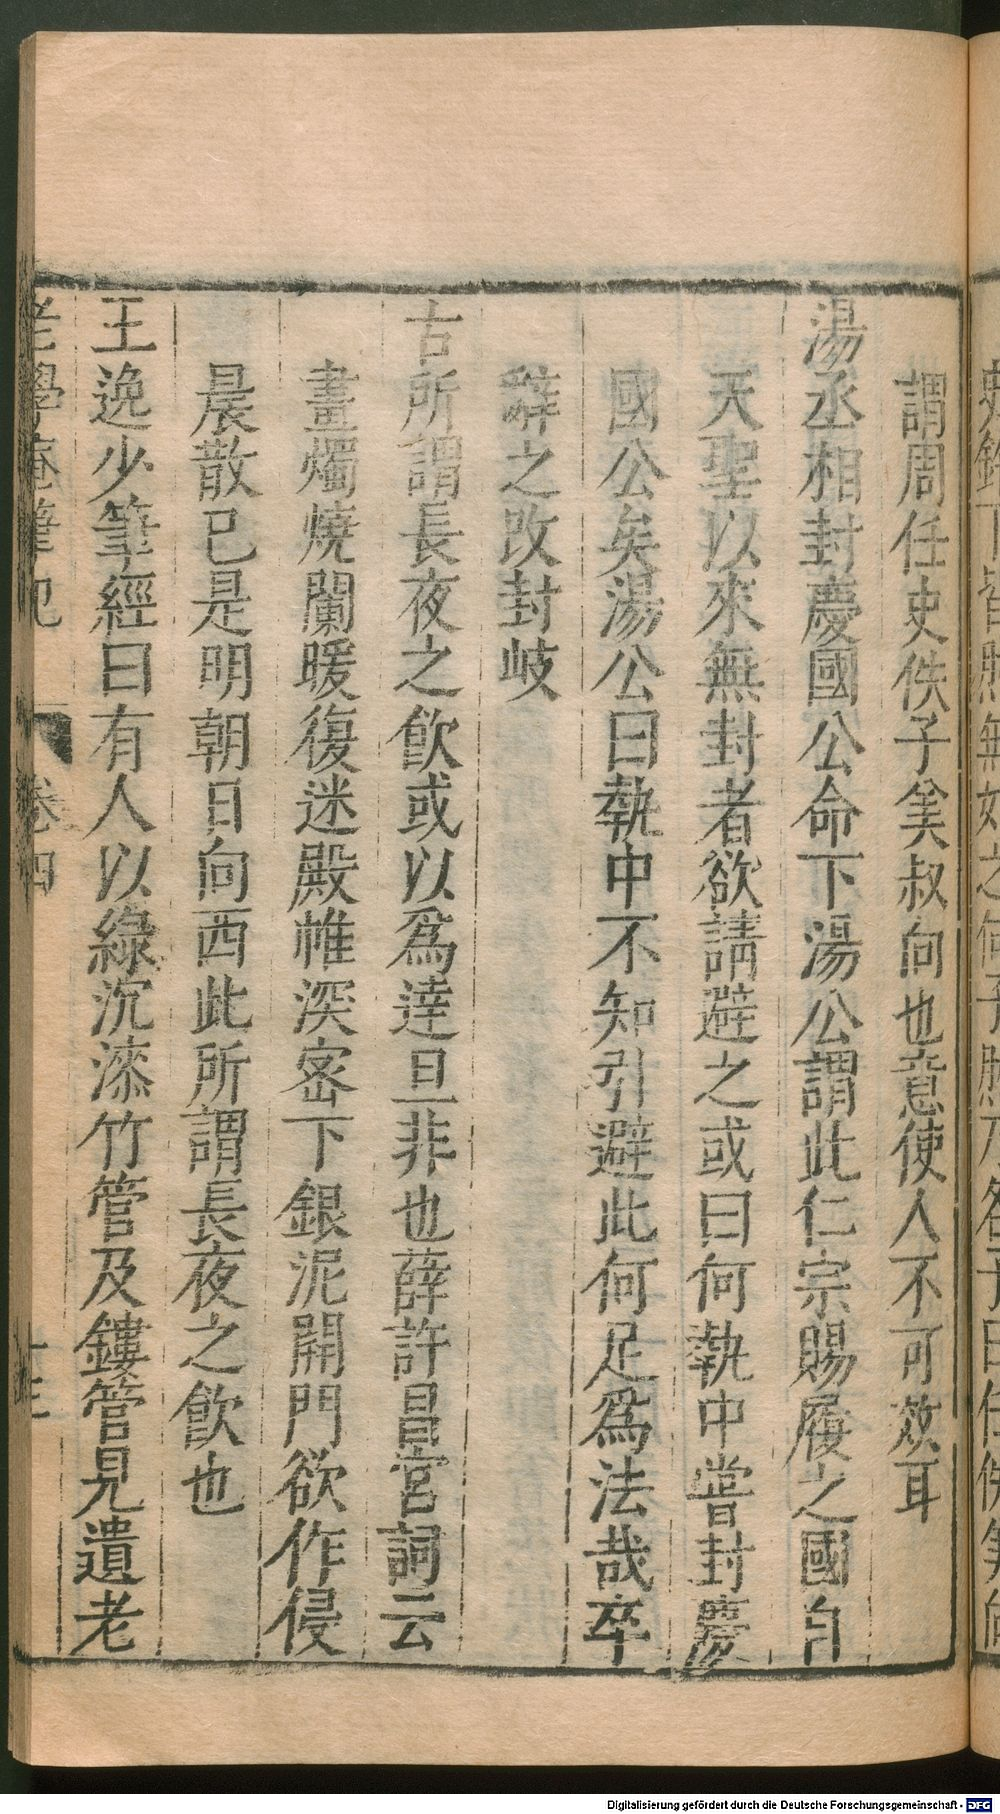 謂周任史佚子羙叔向也意使人不可效耳
湯丞相封慶國公命下湯公謂此仁宗賜履之國自
天聖以來無封者欲請避之或曰何執中嘗封慶
國公矣湯公曰執中不知引避此何足爲法哉卒
辭之改封岐
古所謂長夜之飮或以爲達旦非也薛許昌宮詞云
畫燭燒闌暖復迷殿帷深密下銀泥開門欲作侵
晨散已是明朝日向西此所謂長夜之飮也
王逸少筆經曰有人以綠沉漆竹管及鏤管見遺老
老學庵筆記 卷四 十三
Digitalisierung gefördert durch die Deutsche Forschungsgemeinschaft - DFG